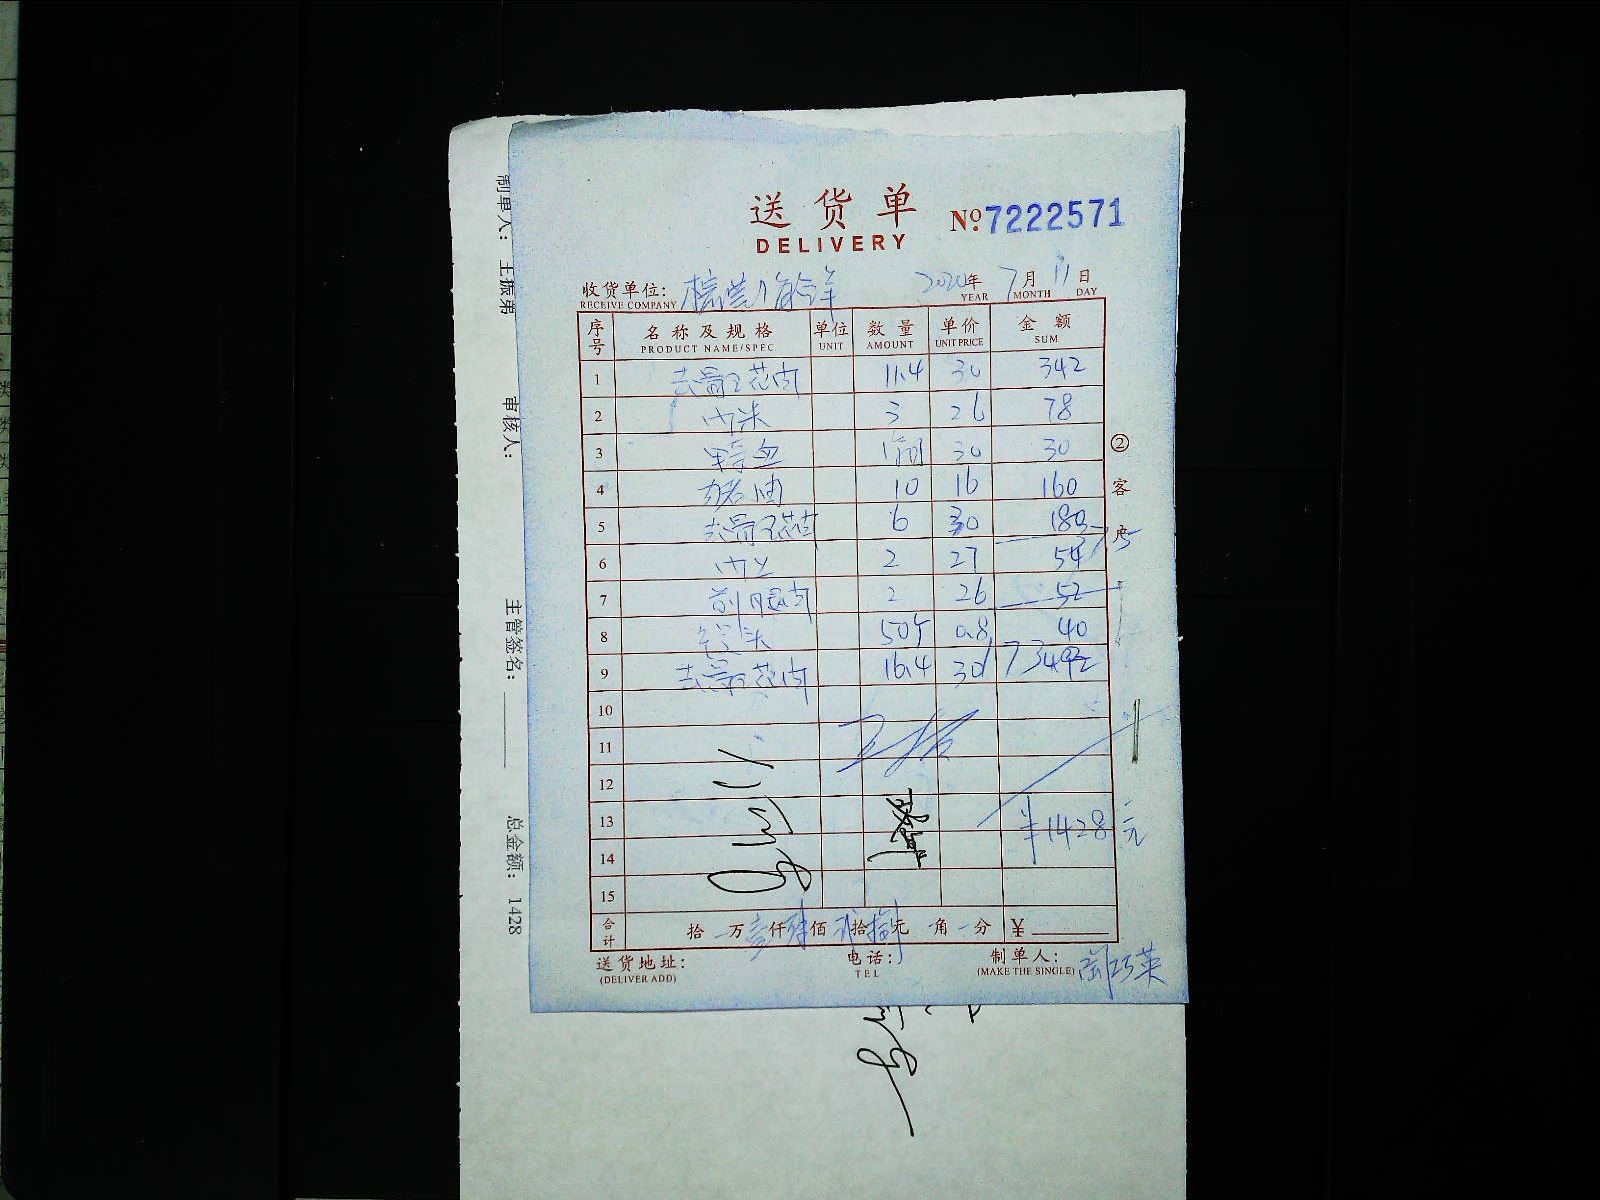 送货单
DELIVERY
№7222571
收货单位:
RECEIVE COMPANY
2020年 7月 11日
YEAR MONTH DAY
序号 名称及规格 单位 数量 单价 金额
PRODUCT NAME/SPEC UNIT AMOUNT UNIT PRICE SUM
1 去骨五花肉 11.4 30 342
2 肉米 3 26 78
3 30 30
4 猪油 10 16 160
5 去骨五花肉 6 30 180
6 2 27 54
7 前腿肉 2 26 52
8 50个 0.8 40
9 去骨五花肉 16.4 30 492
10
11
12
13 ¥1428元
14
15
合计 拾 万壹仟肆佰贰拾捌元 角 分 ¥
送货地址: 电话: 制单人:
(DELIVER ADD) TEL (MAKE THE SINGLE)
②客户
制单人: 王振第 审核人: 主管签名: 总金额: 1428